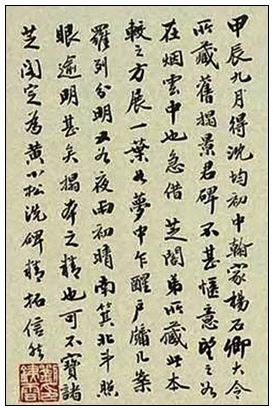 甲辰九月得沈均初中翰家楊石卿大令
所藏舊搨景君碑不甚愜意望之如
在烟雲中也急借芝閣弟所藏此本
較之方展一葉如夢中乍醒戶牖几案
羅列分明又如夜雨初晴南箕北斗照
眼逾明甚矣搨本之精也可不寶諸
芝閣定為黃小松洗碑精拓信然